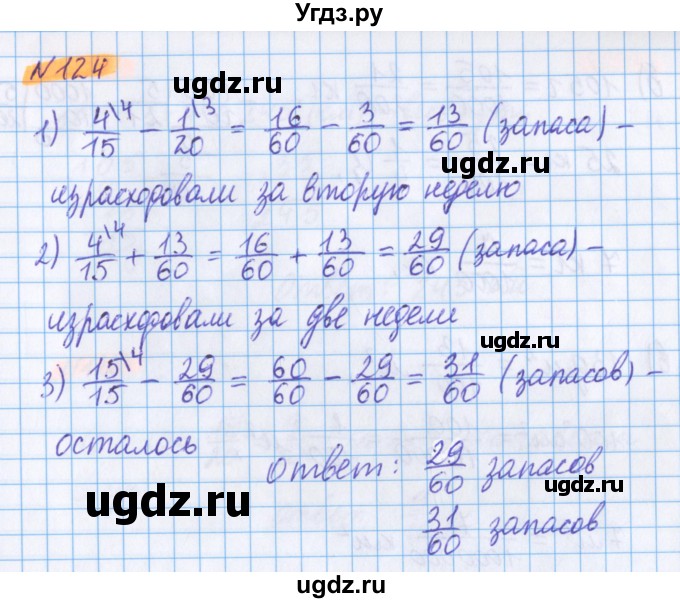 Угдз.ру
N124
ugdz.ru
1) 4\4/15 − 1\3/20 = 16/60 − 3/60 = 13/60 (запаса) −
ugdz.ru
израсходовали за вторую неделю
2) 4\4/15 + 13/60 = 16/60 + 13/60 = 29/60 (запаса) −
израсходовали за две недели
ugdz.ru
ugdz.ru
3) 15\4/15 − 29/60 = 60/60 − 29/60 = 31/60 (запасов) −
осталось
Ответ: 29/60 запасов
ugdz.ru
ugdz.ru
31/60 запасов
ugdz.ru